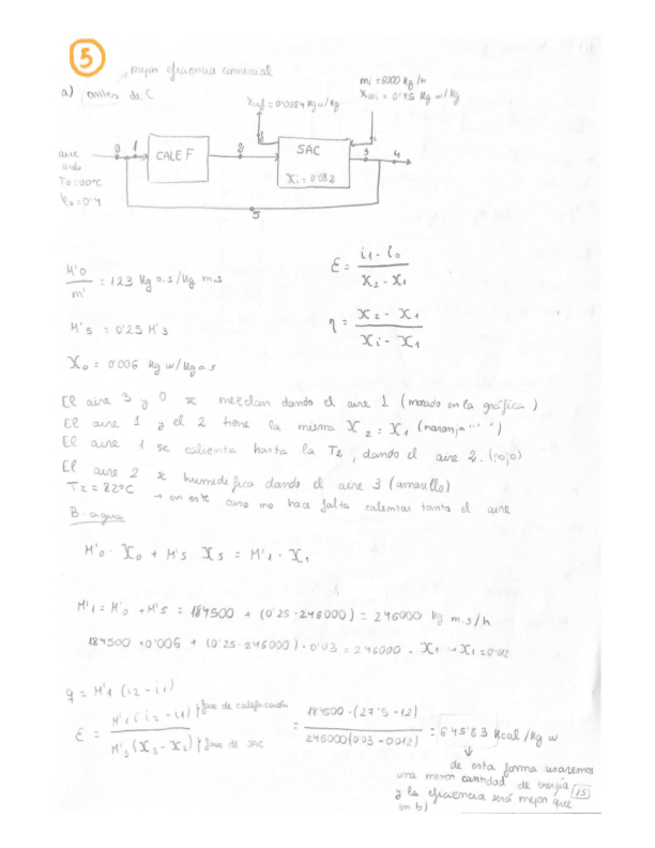 5
mejor eficiencia comercial
a) antes de C
mi = 6000 kg/h
Xwi = 0'45 kg w/kg
Xwf = 0'0384 kg w/kg
0 1 CALEF 2 SAC 3 4
Xi = 0'032
aire
amb
T0 = 20ºC
φ0 = 0'4
5
M'0 / m' = 123 kg a.s/kg m.s
ε = i1 - i0 / X2 - X1
M'5 = 0'25 M'3
η = X2 - X1 / Xi - X1
X0 = 0'006 kg w/kg a.s
El aire 3 y 0 se mezclan dando el aire 1 (morado en la gráfica)
El aire 1 y el 2 tiene la misma X2 = X1 (naranja " " ")
El aire 1 se calienta hasta la T2, dando el aire 2. (rojo)
El aire 2 se humidifica dando el aire 3 (amarillo)
T2 = 82ºC → en este caso no hace falta calentar tanto el aire
B. agua
M'0 · X0 + M'5 X5 = M'1 · X1
M'1 = M'0 + M'5 = 184500 + (0'25 · 246000) = 246000 kg m.s/h
184500 · 0'006 + (0'25 · 246000) · 0'03 = 246000 · X1 → X1 = 0'012
q = M'1 (i2 - i1)
ε = M'1 (i2 - i1) } fase de calefacción / M'3 (X3 - X2) } fase de SAC = 184500 · (27'5 - 12) / 246000 (0'03 - 0'012) = 645'83 Kcal/kg w
de esta forma usaremos
una menor cantidad de energía
y la eficiencia será mejor que
en b)
15